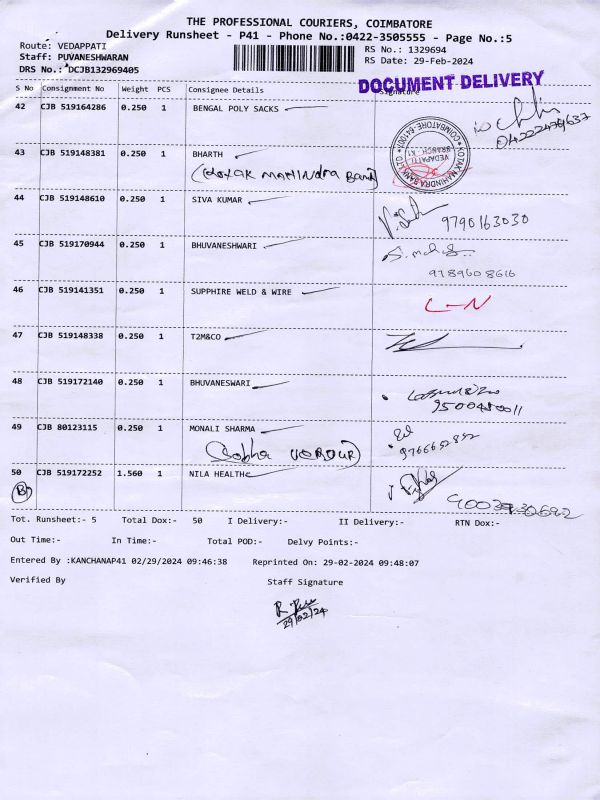 THE PROFESSIONAL COURIERS, COIMBATORE
Delivery Runsheet - P41 - Phone No.:0422-3505555 - Page No.:5
Route: VEDAPPATI
RS No.: 1329694
Staff: PUVANESHWARAN
RS Date: 29-Feb-2024
DRS No.: DCJB132969405
DOCUMENT DELIVERY
S No Consignment No Weight PCS Consignee Details Signature
42 CJB 519164286 0.250 1 BENGAL POLY SACKS
04222479637
43 CJB 519148381 0.250 1 BHARTH
(Kotak MAHINDRA Bank)
KOTAK MAHINDRA BANK LTD * COIMBATORE-641007 *
VEDAPATTI BRANCH, KT.
44 CJB 519148610 0.250 1 SIVA KUMAR
9790163030
45 CJB 519170944 0.250 1 BHUVANESHWARI
9789608616
46 CJB 519141351 0.250 1 SUPPHIRE WELD & WIRE
L-N
47 CJB 519148338 0.250 1 T2M&CO
48 CJB 519172140 0.250 1 BHUVANESWARI
9500480011
49 CJB 80123115 0.250 1 MONALI SHARMA
9766652852
50 CJB 519172252 1.560 1 NILA HEALTHc
Tot. Runsheet:- 5 Total Dox:- 50 I Delivery:- II Delivery:- RTN Dox:-
Out Time:- In Time:- Total POD:- Delvy Points:-
Entered By :KANCHANAP41 02/29/2024 09:46:38 Reprinted On: 29-02-2024 09:48:07
Verified By Staff Signature
29/02/24